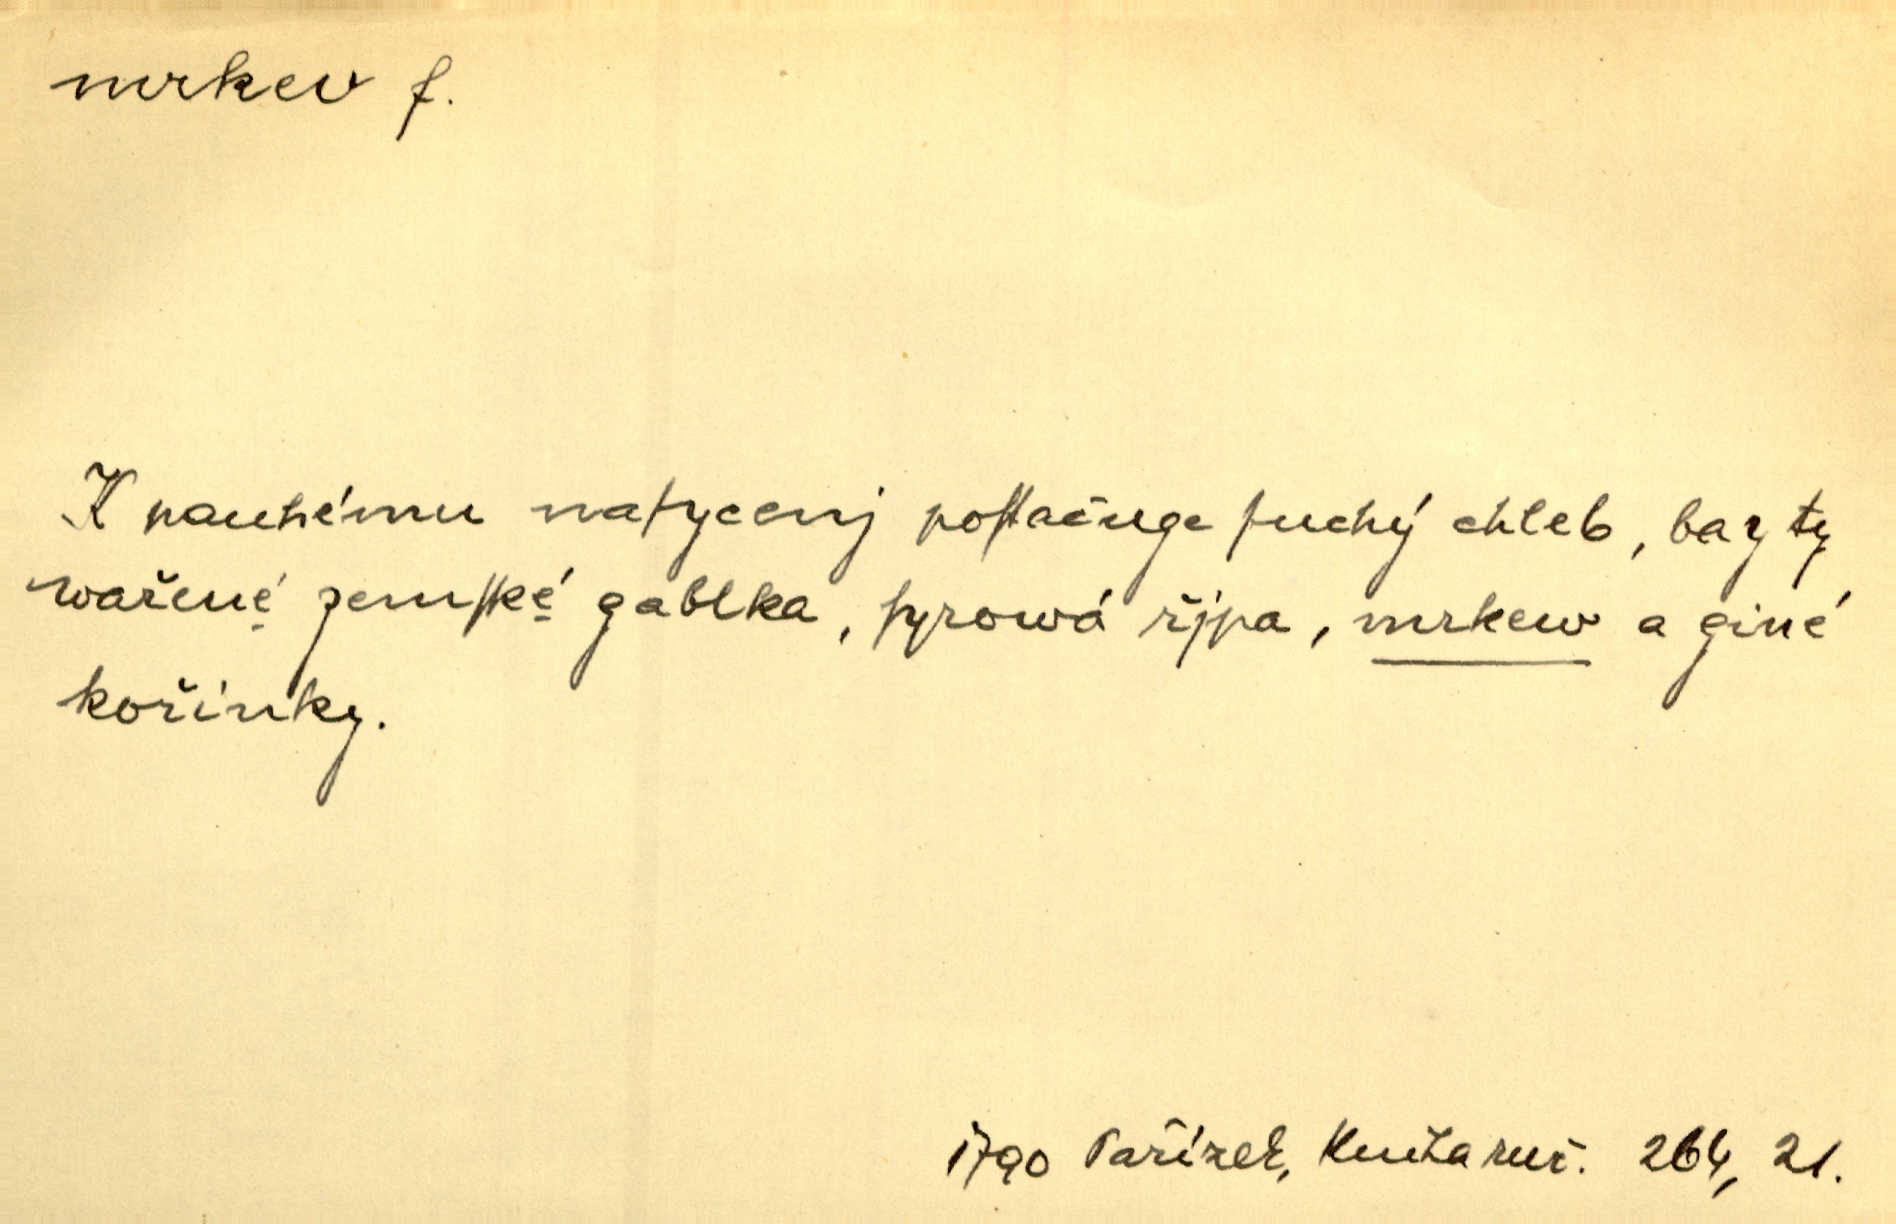 mrkev f.
K pauhému naſycenj poſtačuge ſuchý chleb, bar ty
wařené zemſké gablka, ſyrowá řjpa, mrkew a giné
kořínky.
1790 Pařízek, Kniha ruč. 264, 21.